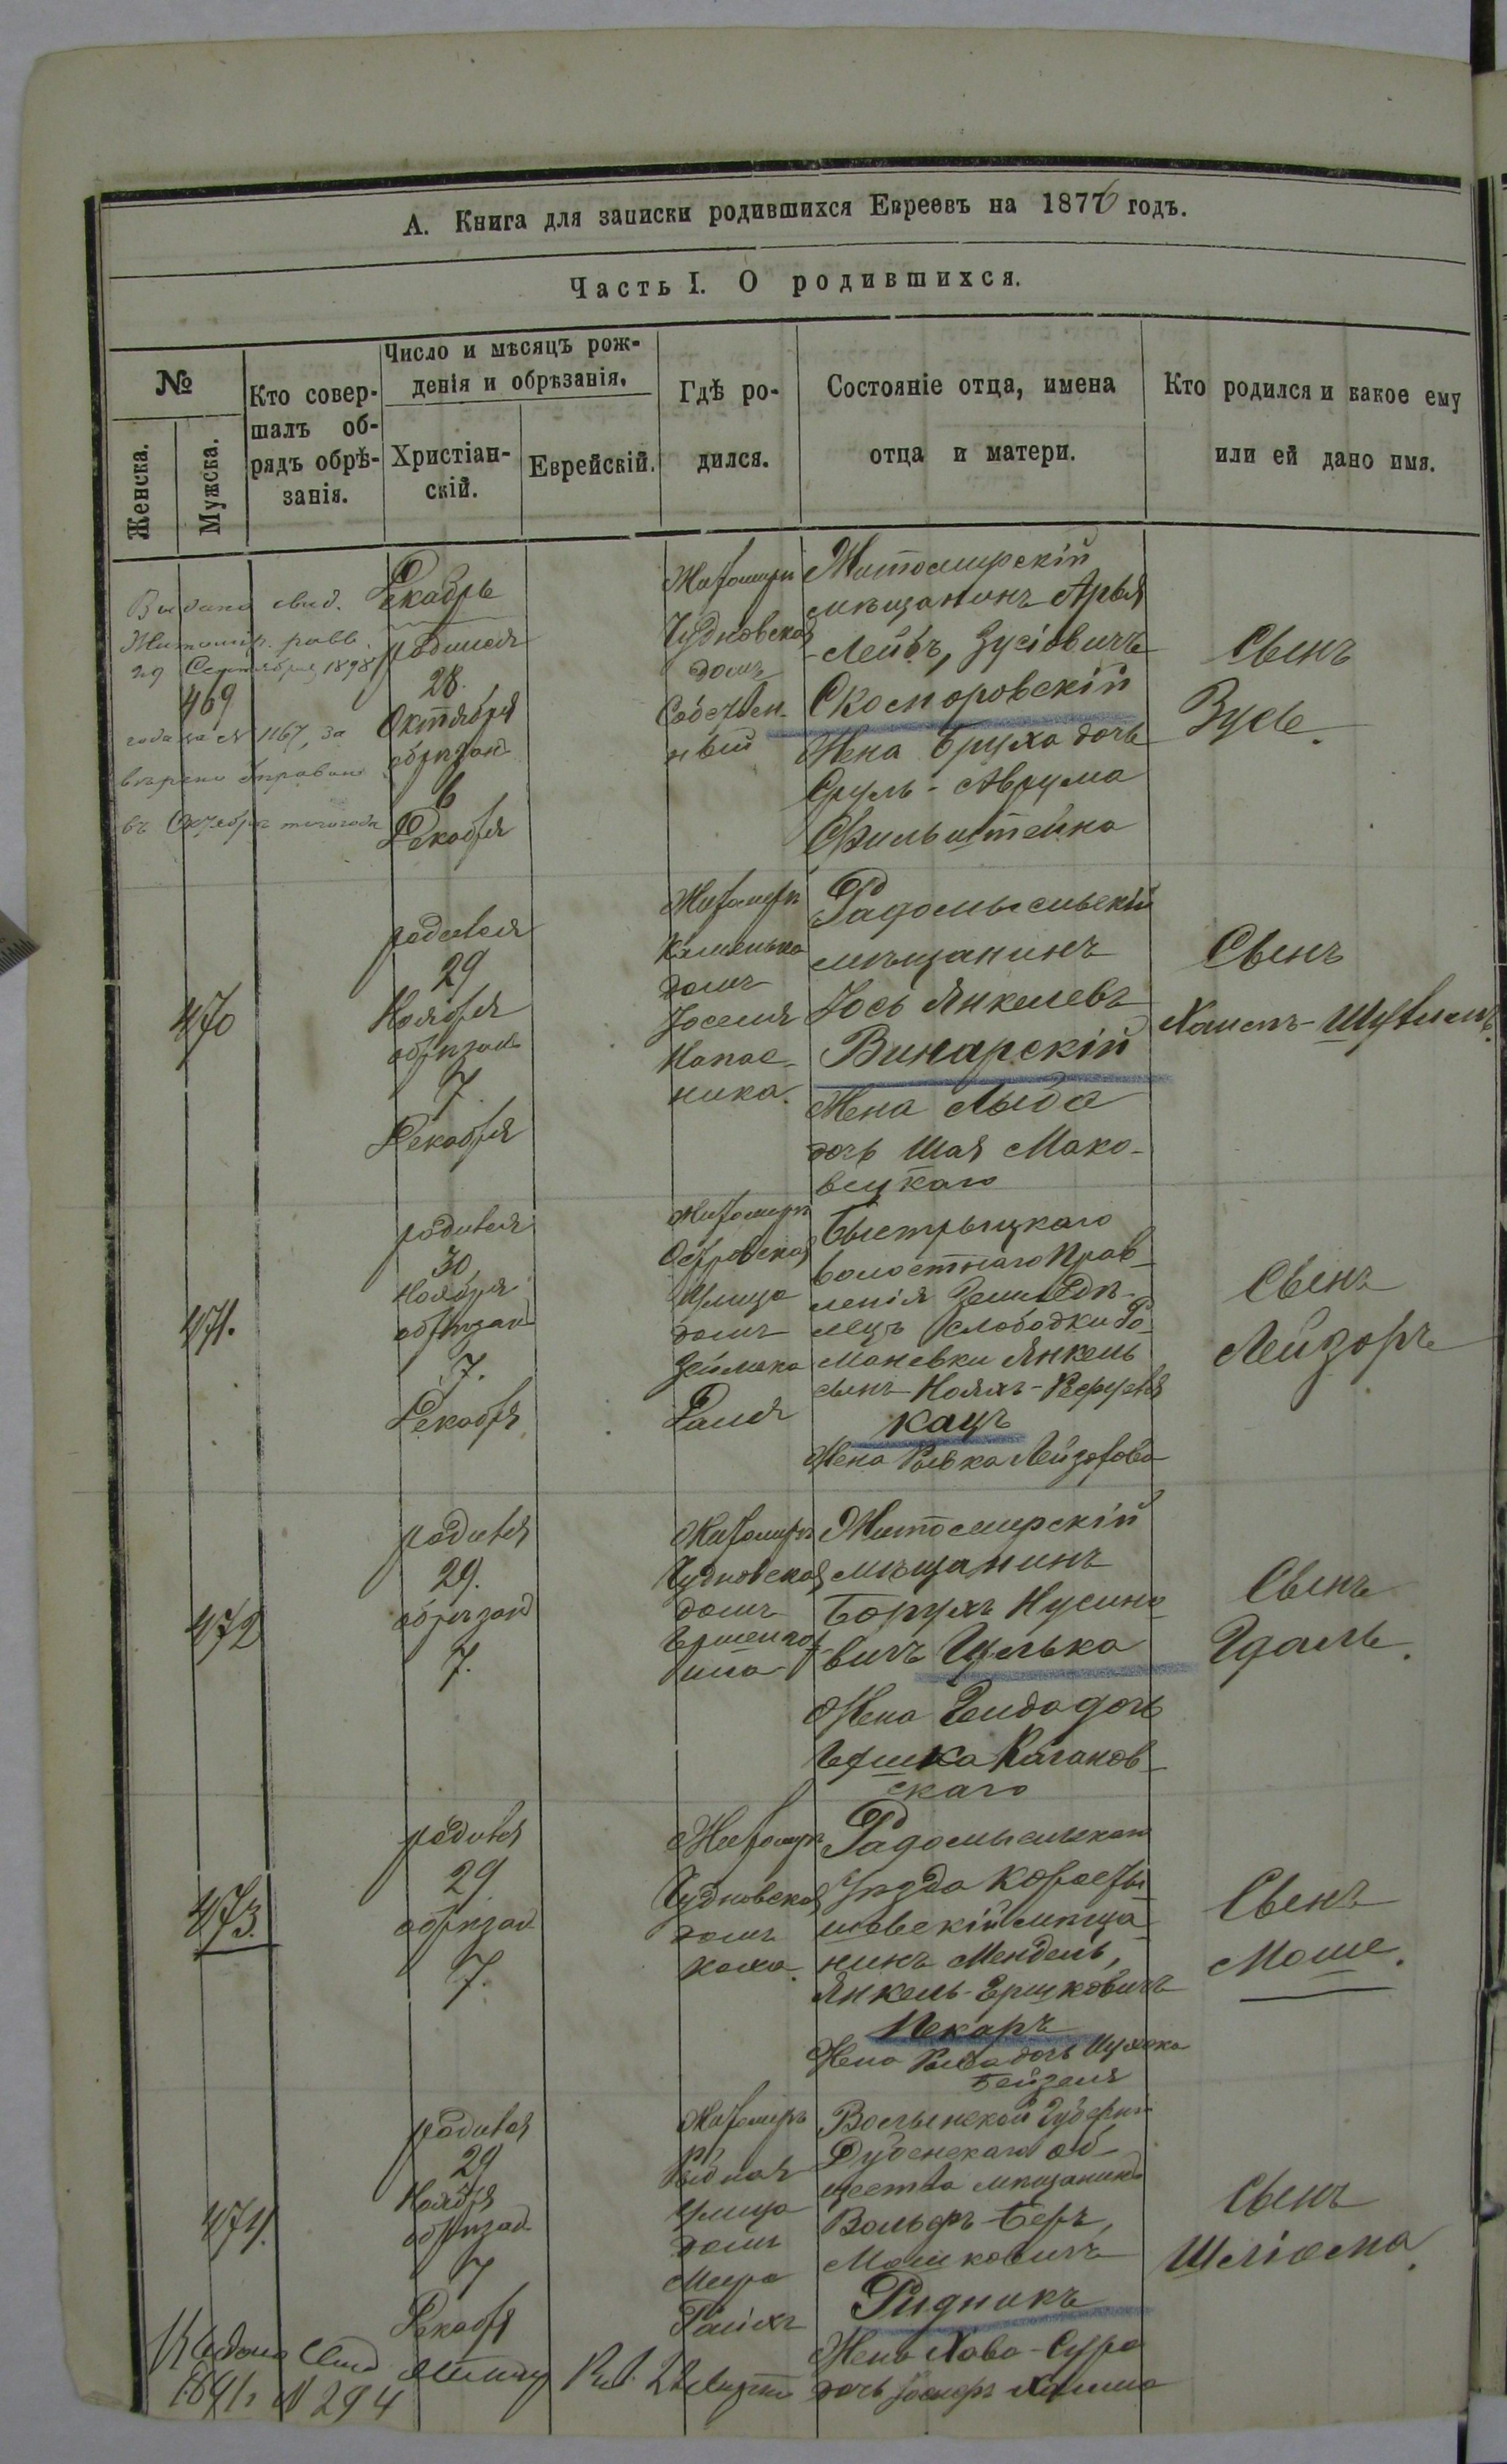 А. Книга для записки родившихся Евреевъ на 1876 годъ.
Часть I. О родившихся.
№
Женска.
Мужска.
Кто совер-
шалъ об-
рядъ обрѣ-
занія.
Число и мѣсяцъ рож-
денія и обрѣзанія.
Христіан-
скій.
Еврейскій.
Гдѣ ро-
дился.
Состояніе отца, имена
отца и матери.
Кто родился и какое ему
или ей дано имя.
Выдано свид.
Житомир. равв.
29 Сентября 1898
года за № 1167, за
въ Октябрѣ того года
469
Декабрь
родился
28.
Октября
обрѣзан
6
Декабря
Житомиръ
Чудновская
домъ
Собствен-
ный
Житомирскій
мѣщанинъ Арья
-Лейбъ, Зусіовичъ
Скоморовскій
Жена Бруха дочь
Сруль-Аврума
Фильштейна
Сынъ
Зусь.
470
родился
29
Ноября
обрѣзан
7.
Декабря
Житомиръ
домъ
Иоселя
Радомысльскій
мѣщанинъ
Іось Янкелевъ
Винарскій
Жена
дочь Шая Мако-
вецкаго
Сынъ
Хаимъ-Шулимъ.
471.
родился
30
Ноября
обрѣзан
7.
Декабря
Житомиръ
Островская
Улица
домъ
Быстрыцкаго
волостнаго Прав-
ленія Землѣдѣ-
лецъ слободки Ро-
мановки Янкель
сынъ
Кацъ
Жена Ривка Лейзорова
Сынъ
Лейзоръ
472
родился
29.
обрѣзан
7.
Житомиръ
Чудновская
домъ
Житомирскій
мѣщанинъ
Борухъ Нусино-
вичъ Цулька
Жена дочь
Гершка
скаго
Сынъ
Гдаль.
473.
родился
29
обрѣзан
7.
Житомиръ
Чудновская
домъ
Коха.
Радомысльскаго
Уѣзда Коросты-
шовскій мѣща-
нинъ Мендель,
Янкель-Ершковичъ
Пекаръ
Жена дочь
Бейзеля
Сынъ
Моше.
474.
родился
29
Ноября
обрѣзан
7
Декабря
Житомиръ
Рыбная
Улица
домъ
Меера
Волынской Губерніи
Дубенскаго об-
щества мѣщанинъ
Вольфъ-Беръ,
Мошковичъ
Ридникъ
Жена Хава-Сура
дочь Хаима
Сынъ
Шліома.
Выдано
1891 г № 294